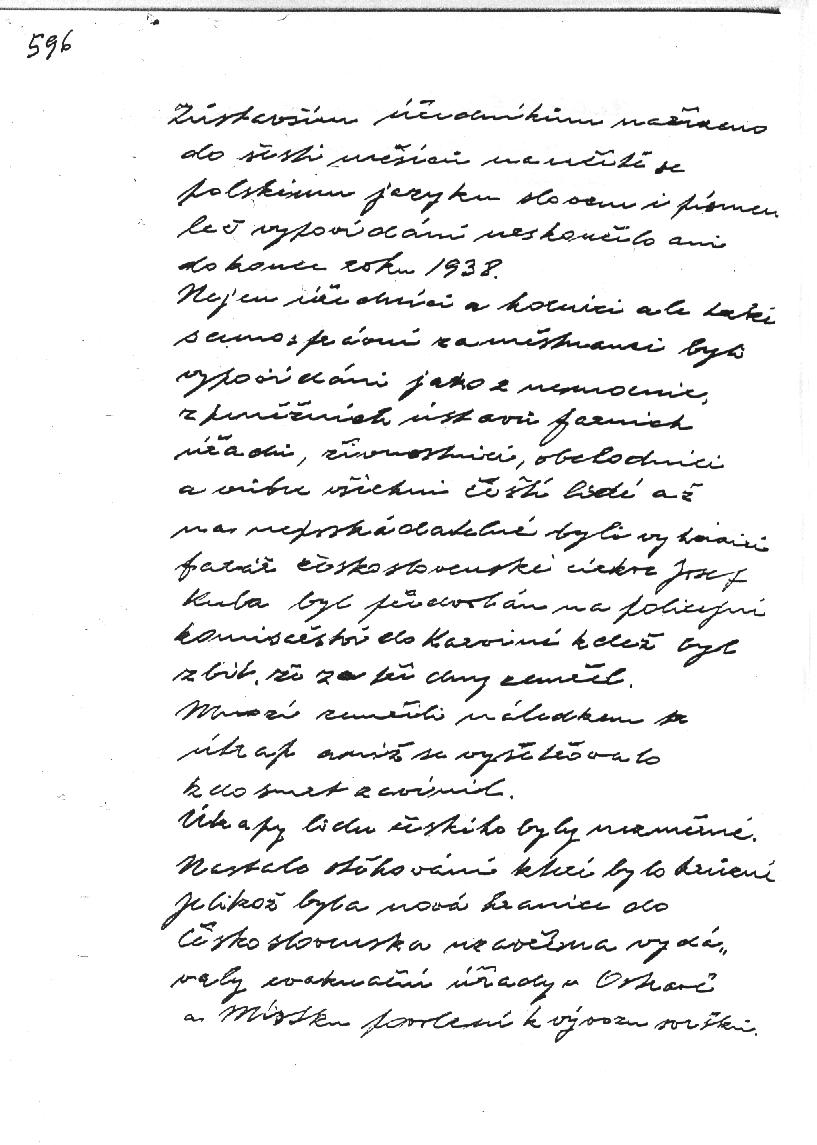 596
Zůstavším úředníkům nařízeno
do šesti měsíců naučiti se
polskému jazyku slovem i písmem
leč vypovídání neskončilo ani
do konce roku 1938.
Nejen úředníci a horníci ale také
samosprávní zaměstnanci byli
vypovídáni jako z nemocnic,
z peněžních ústavů farních
úřadů, živnostníci, obchodníci
a vůbec všichni čeští lidé až
na nepostrádatelné byli vyháněni
farář československé církve Josef
Kuba byl předvolán na policejní
komisařství do Karviné kdež byl
zbit, že za tři dny zemřel.
Mnozí zemřeli následkem
útrap aniž se vyšetřovalo
kdo smrt zavinil.
Útrapy lidu českého byly nezměrné.
Nastalo stěhování které bylo ztíženo
jelikož byla nová hranice do
Československa uzavřena vydá„
valy evakuační úřady v Ostravě
a Místku povolení k vývozu svršků.